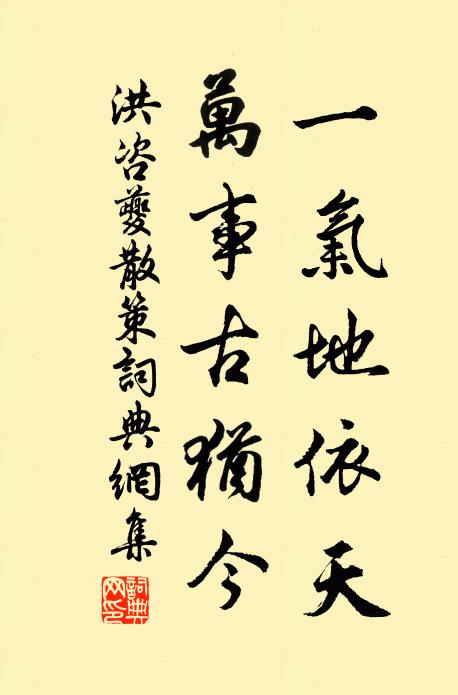 一氣地依天
萬事古猶今
洪咨夔散策詞典網集
詞典网印